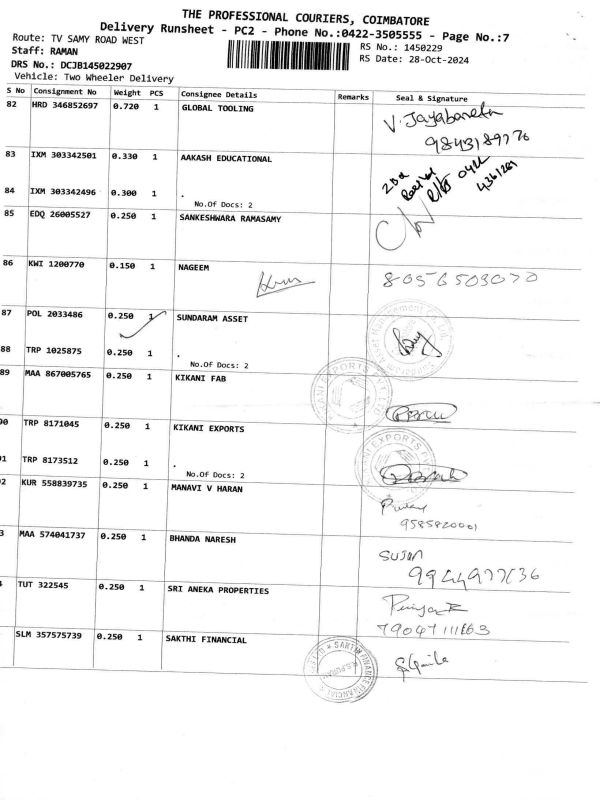 THE PROFESSIONAL COURIERS, COIMBATORE
Delivery Runsheet - PC2 - Phone No.:0422-3505555 - Page No.:7
Route: TV SAMY ROAD WEST
RS No.: 1450229
Staff: RAMAN
RS Date: 28-Oct-2024
DRS No.: DCJB145022907
Vehicle: Two Wheeler Delivery
S No Consignment No Weight PCS Consignee Details Remarks Seal & Signature
82 HRD 346852697 0.720 1 GLOBAL TOOLING
9843189776
83 IXM 303342501 0.330 1 AAKASH EDUCATIONAL
84 IXM 303342496 0.300 1 .
No.Of Docs: 2
85 EDQ 26005527 0.250 1 SANKESHWARA RAMASAMY
86 KWI 1200770 0.150 1 NAGEEM
8056509070
87 POL 2033486 0.250 1 SUNDARAM ASSET
88 TRP 1025875 0.250 1 .
No.Of Docs: 2
89 MAA 867005765 0.250 1 KIKANI FAB
90 TRP 8171045 0.250 1 KIKANI EXPORTS
91 TRP 8173512 0.250 1 .
No.Of Docs: 2
2 KUR 558839735 0.250 1 MANAVI V HARAN
9585820001
3 MAA 574041737 0.250 1 BHANDA NARESH
SUJAN
TUT 322545 0.250 1 SRI ANEKA PROPERTIES
SLM 357575739 0.250 1 SAKTHI FINANCIAL